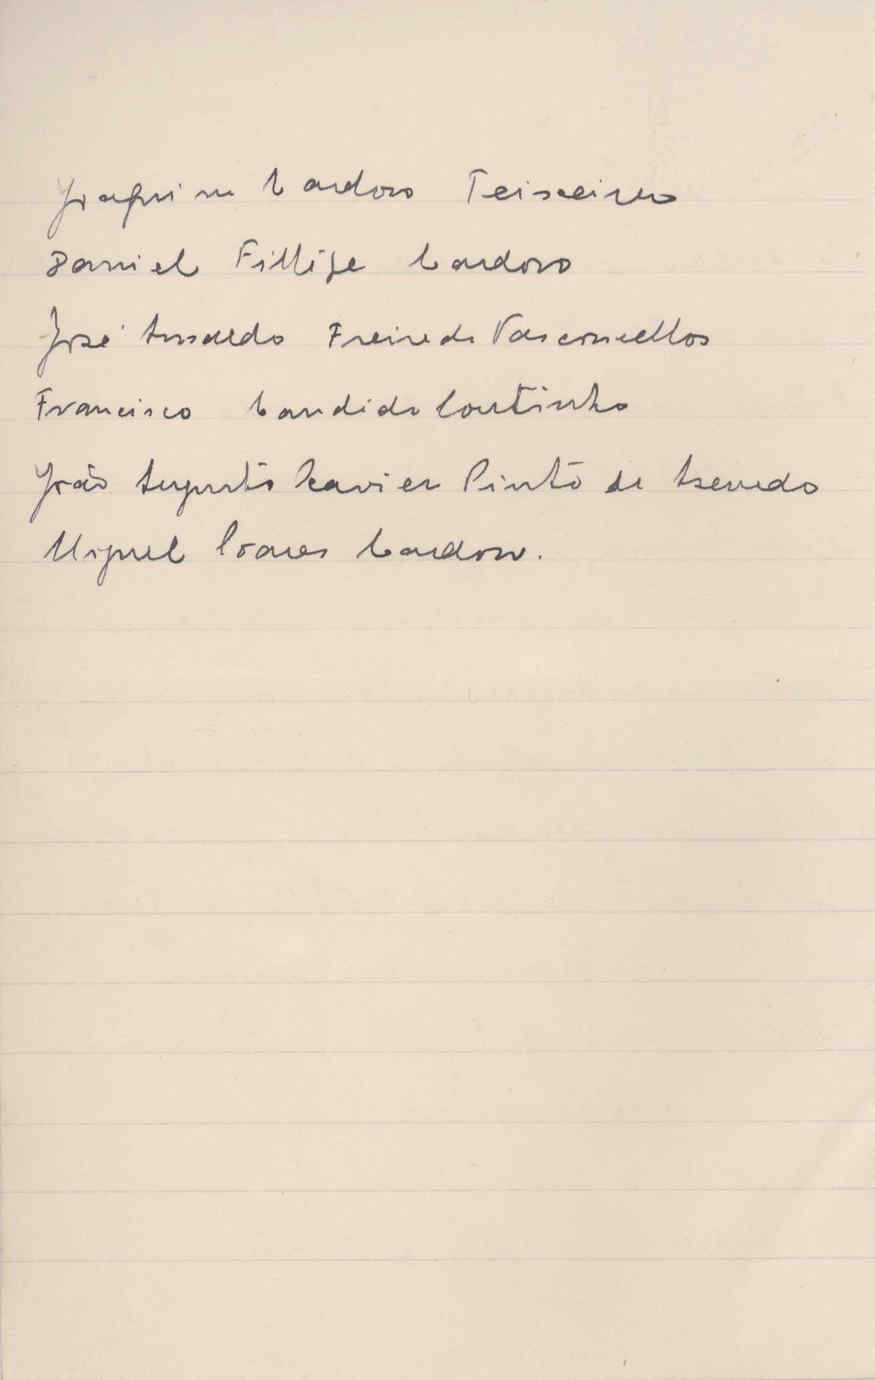 Joaquim Cardoso Teixeira
Daniel Fillipe Cardoso
José Freire de Vasconcellos
Francisco Candido Coutinho
João Augusto Xavier Pinto de Azevedo
Miguel Soares Cardoso.